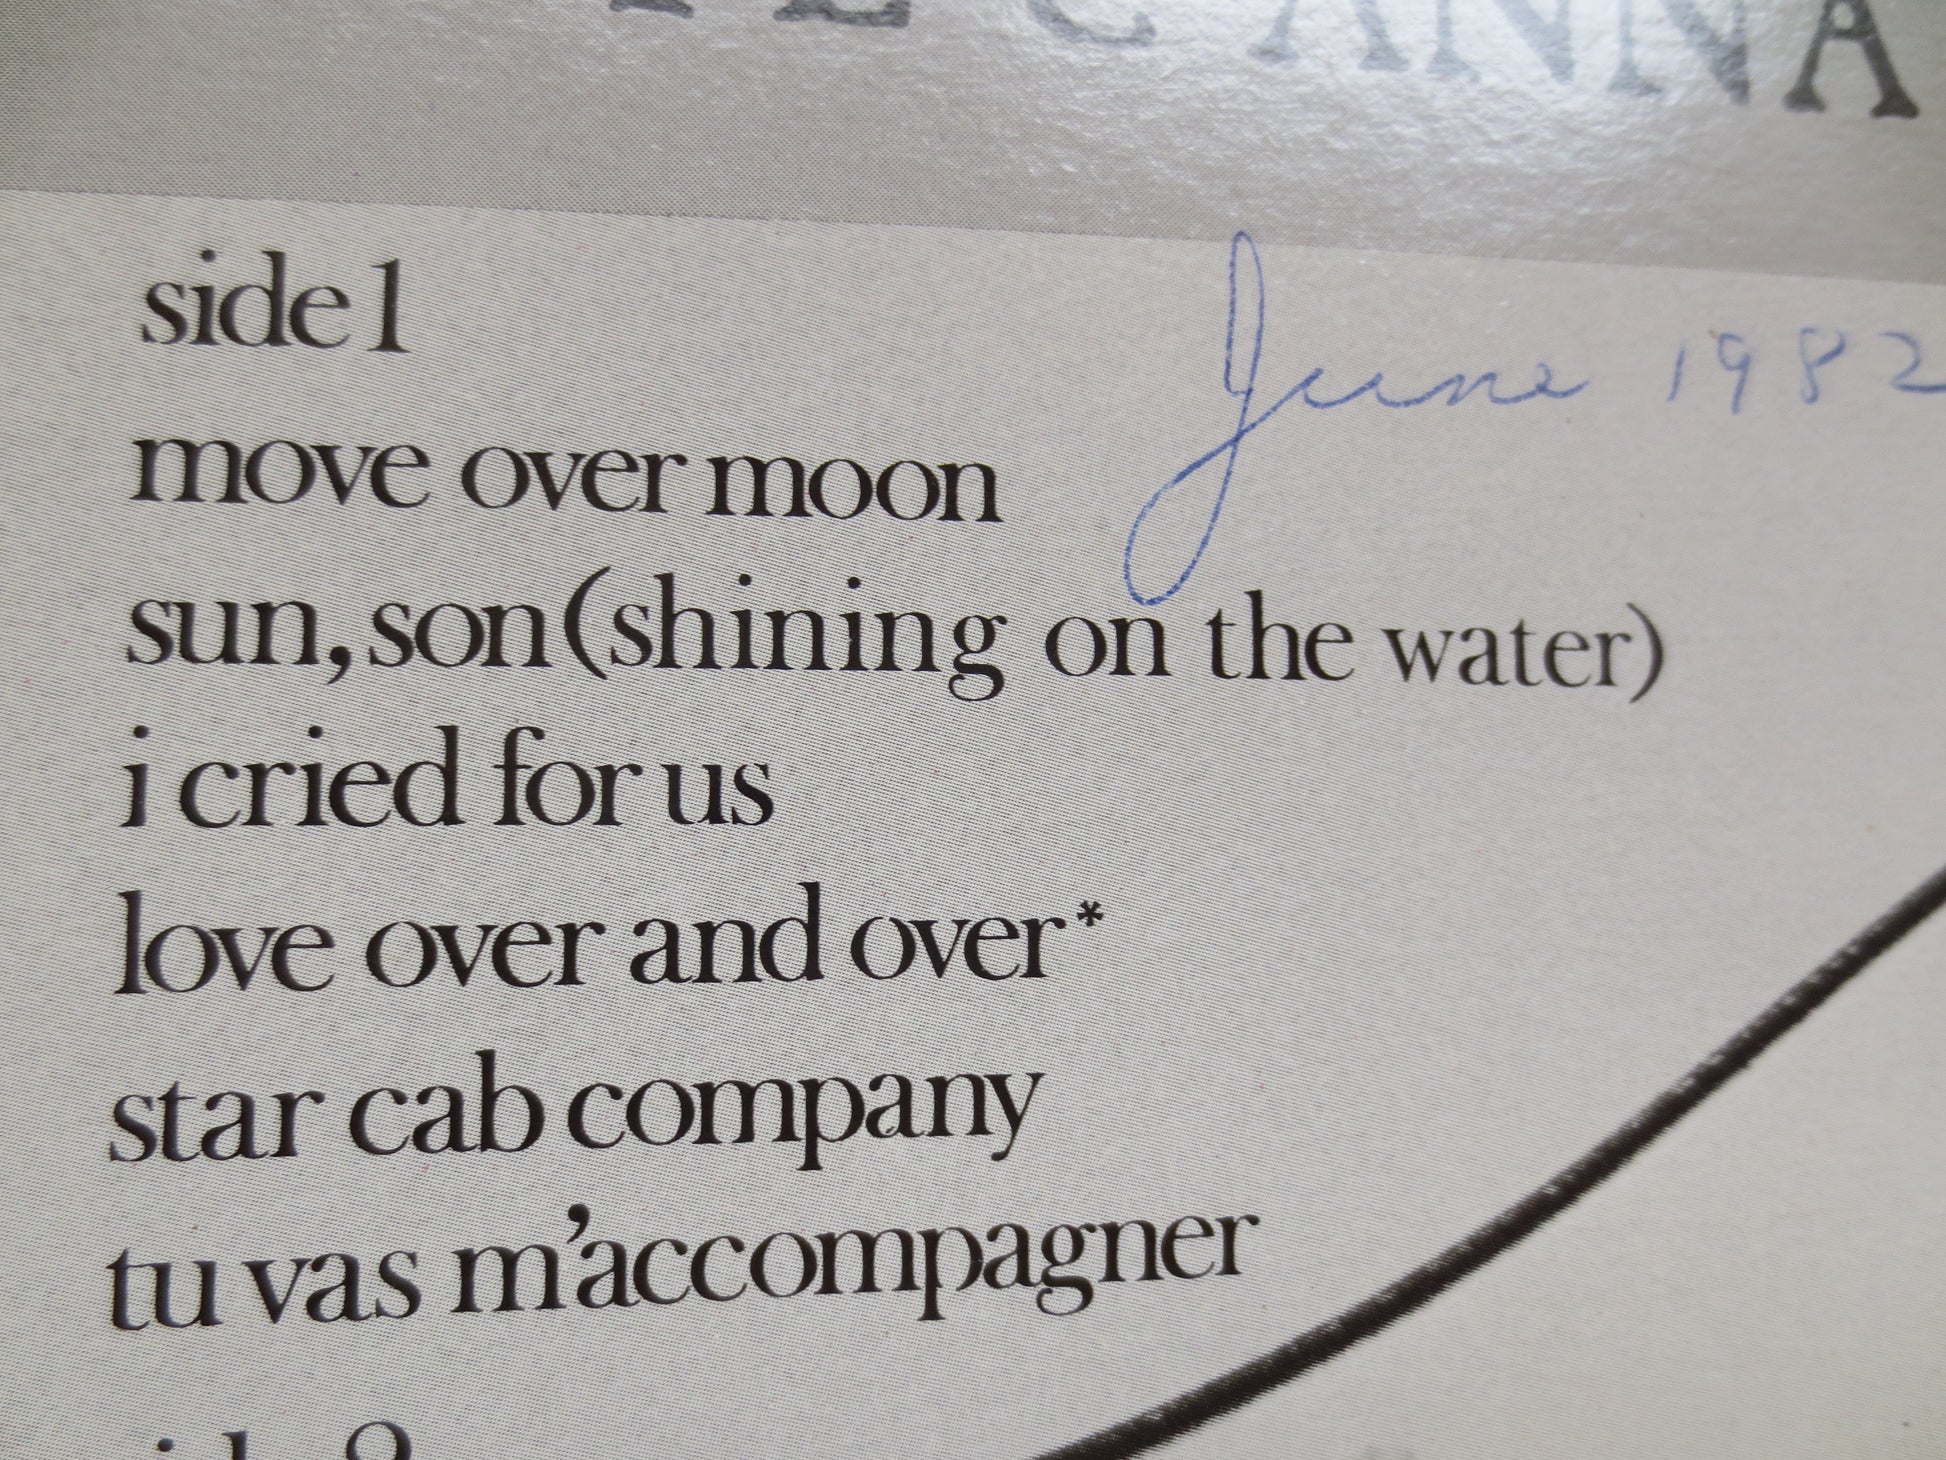 & ANNA
side 1
June 1982
move over moon
sun, son (shining on the water)
i cried for us
love over and over*
star cab company
tu vas m'accompagner